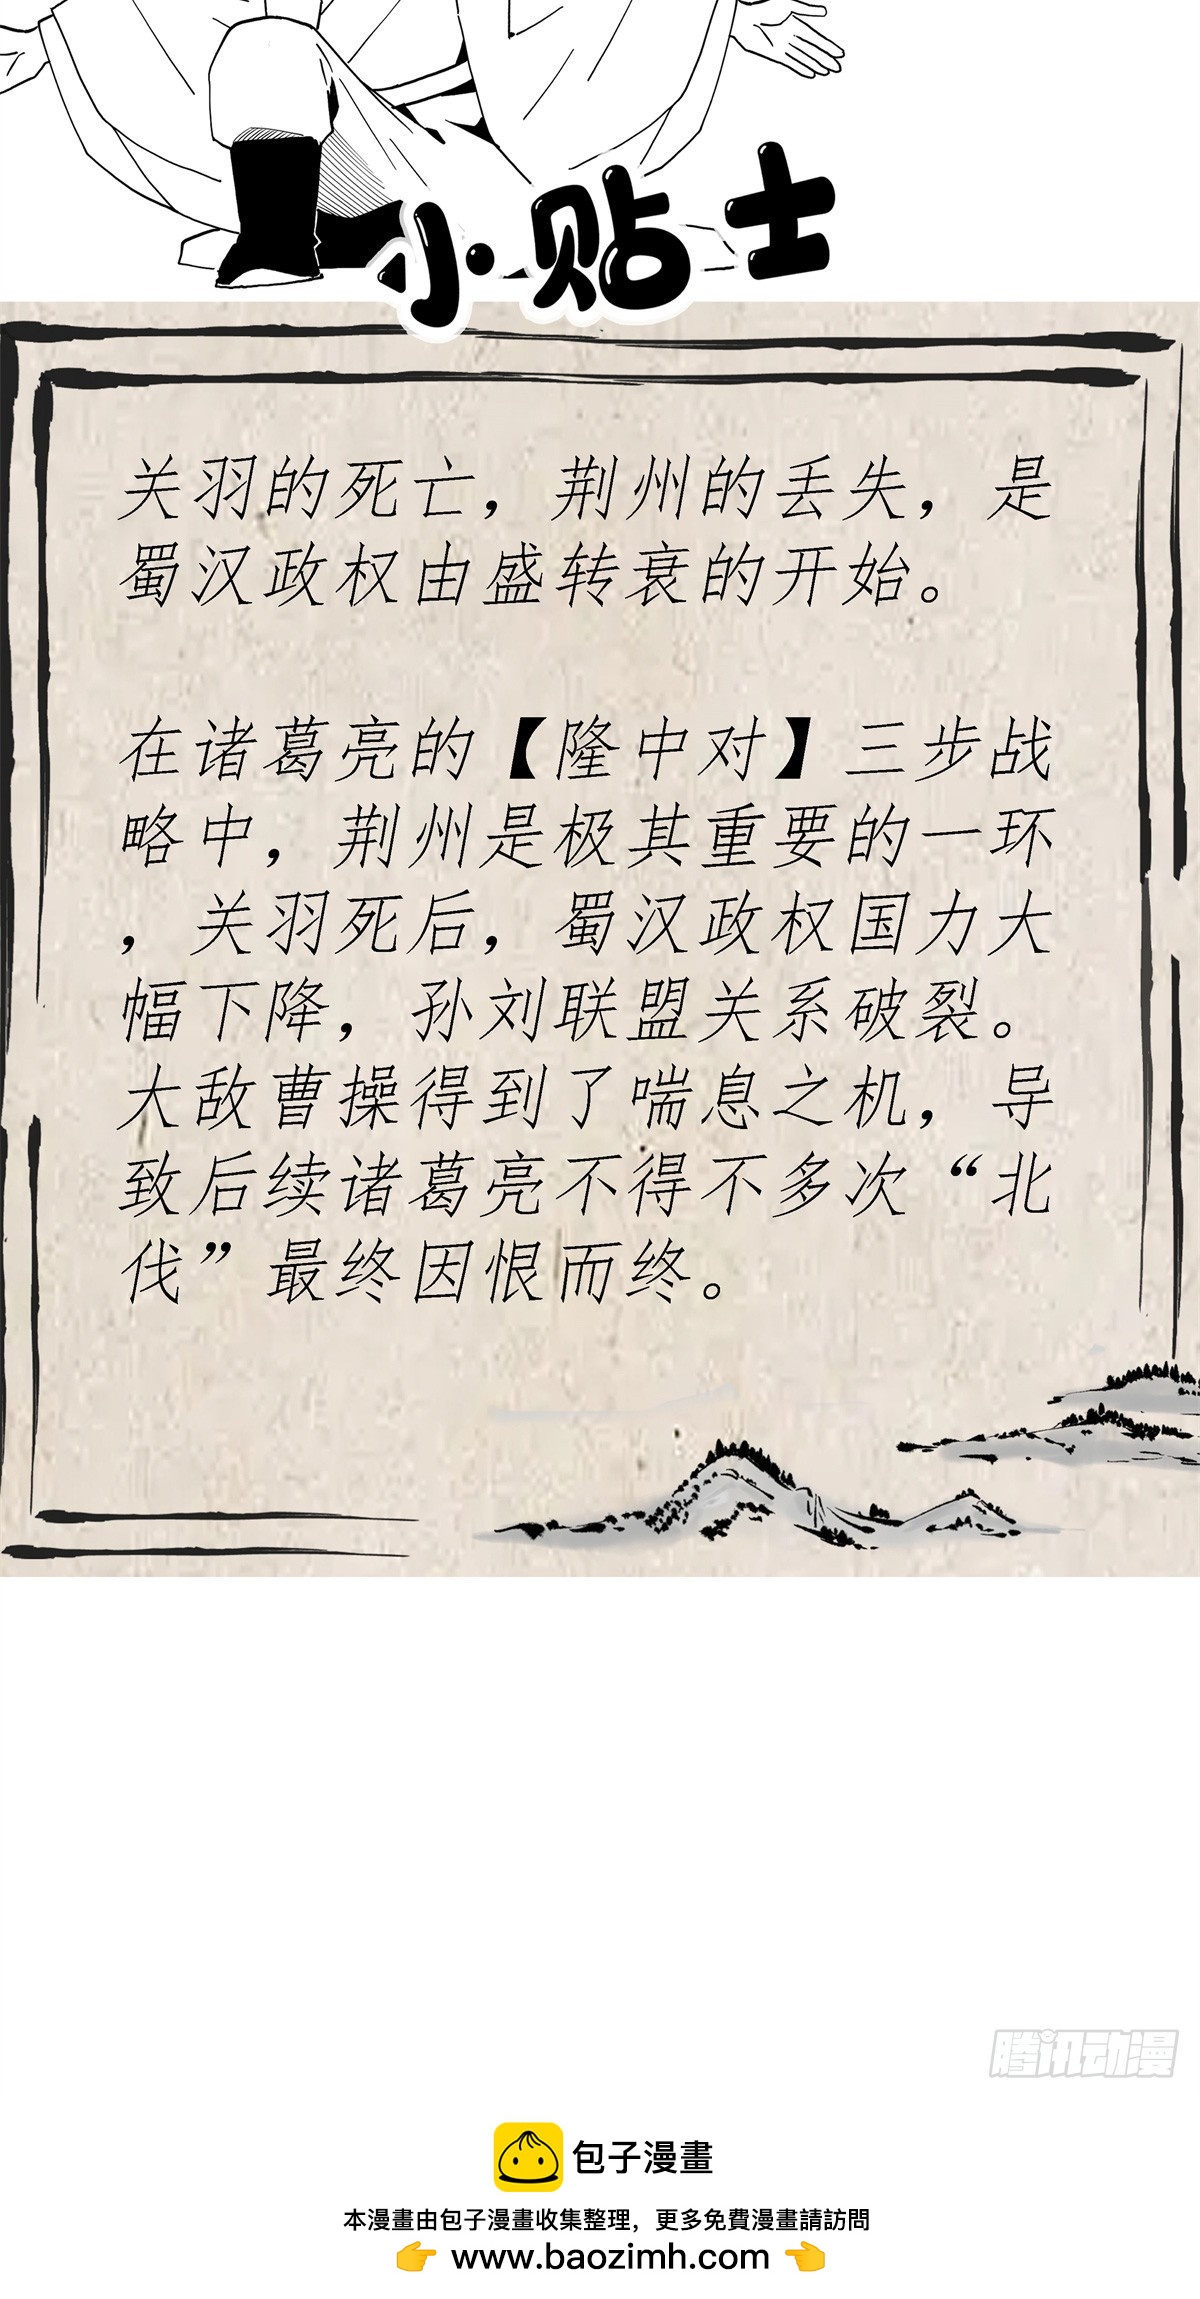 小贴士
关羽的死亡，荆州的丢失，是
蜀汉政权由盛转衰的开始。
在诸葛亮的【隆中对】三步战
略中，荆州是极其重要的一环
，关羽死后，蜀汉政权国力大
幅下降，孙刘联盟关系破裂。
大敌曹操得到了喘息之机，导
致后续诸葛亮不得不多次“北
伐”最终因恨而终。
腾讯动漫
包子漫畫
本漫畫由包子漫畫收集整理，更多免費漫畫請訪問
👉 www.baozimh.com 👈